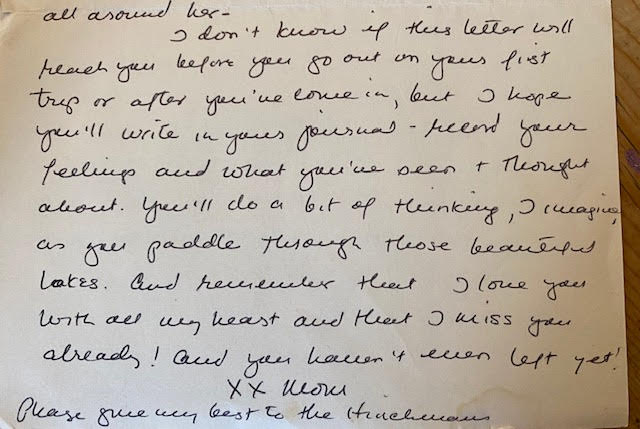 all around her-
I don't know if this letter will
reach you before you go out on your first
trip or after you've come in, but I hope
you'll write in your journal - record your
feelings and what you've seen + thought
about. You'll do a bit of thinking, I imagine,
as you paddle through those beautiful
lakes. And remember that I love you
with all my heart and that I miss you
already! And you haven't even left yet!
XX Mom
Please give my best to the Hinchmans